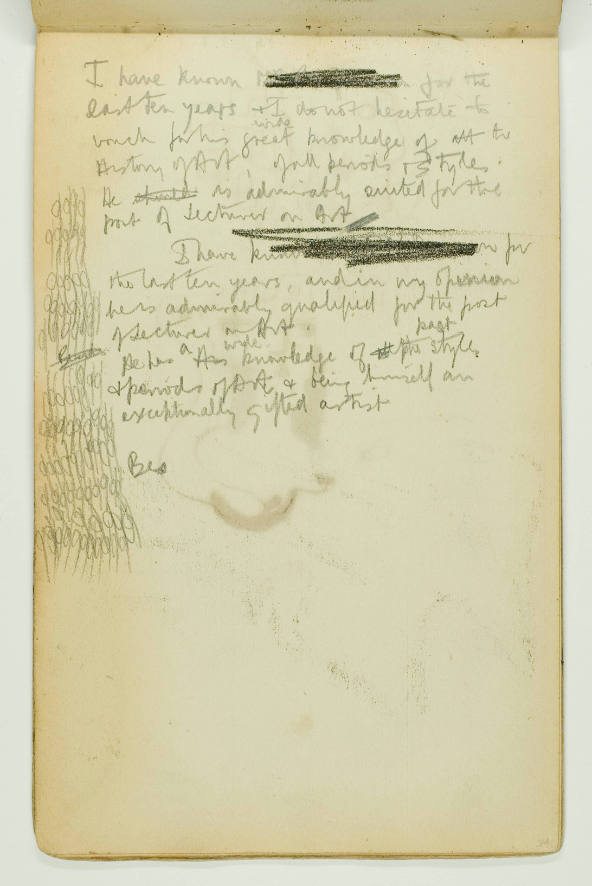 I have known for the
last ten years & I do not hesitate to
wide
vouch for his great knowledge of the
History of Art, of all periods & Styles.
He is admirably suited for the
post of Lecturer on Art
I have known for
the last ten years, and in my opinion
he is admirably qualified for the post
of Lecturer on Art.
wide past
He has a knowledge of the styles
& periods of Art, & being himself an
exceptionally gifted artist
Bes